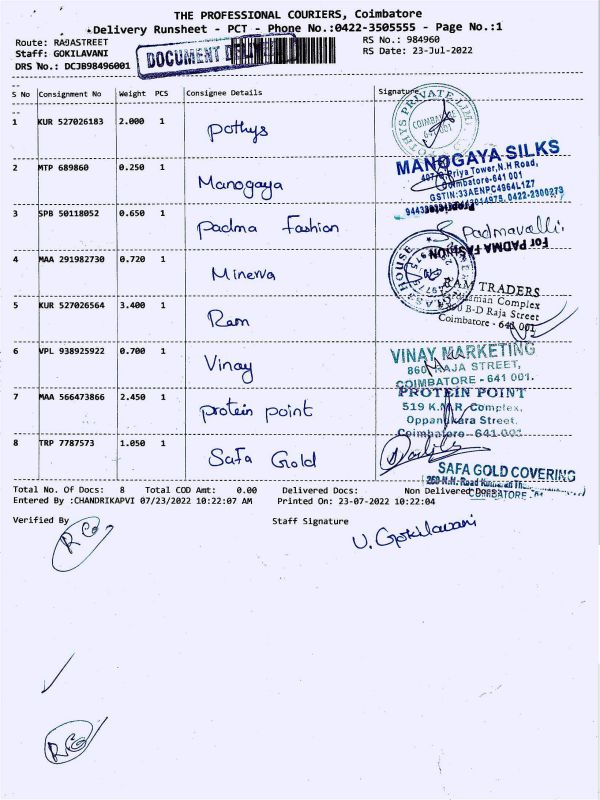 THE PROFESSIONAL COURIERS, Coimbatore
Delivery Runsheet - PCT - Phone No.:0422-3505555 - Page No.:1
Route: RAJASTREET
RS No.: 984960
Staff: GOKILAVANI
RS Date: 23-Jul-2022
DRS No.: DCJB98496001
DOCUMENT
S No Consignment No Weight PCS Consignee Details Signature
1 KUR 527026183 2.000 1 pothys
POTHYS PRIVATE LIMITED
COIMBATORE
641 001
2 MTP 689860 0.250 1 Manogaya
MANOGAYA SILKS
Priya Tower, N.H Road,
Coimbatore-641 001
GSTIN:33AENPC4964L1Z7
0422-2300273
Proprietor
3 SPB 50118052 0.650 1 padma Fashion
Padmavalli
For PADMA FASHION
4 MAA 291982730 0.720 1 Minerva
5 KUR 527026564 3.400 1 Ram
RAM TRADERS
Complex
B-D Raja Street
Coimbatore - 641 001
6 VPL 938925922 0.700 1 Vinay
VINAY MARKETING
860, RAJA STREET,
COIMBATORE - 641 001.
7 MAA 566473866 2.450 1 protein point
PROTEIN POINT
519 K.M.R Complex,
Oppankara Street,
Coimbatore - 641-001
8 TRP 7787573 1.050 1 Safa Gold
SAFA GOLD COVERING
260-N.H. Road
COIMBATORE
Total No. Of Docs: 8 Total COD Amt: 0.00 Delivered Docs: Non Delivered Docs:
Entered By :CHANDRIKAPVI 07/23/2022 10:22:07 AM Printed On: 23-07-2022 10:22:04
Verified By Staff Signature
U. Gokilavani